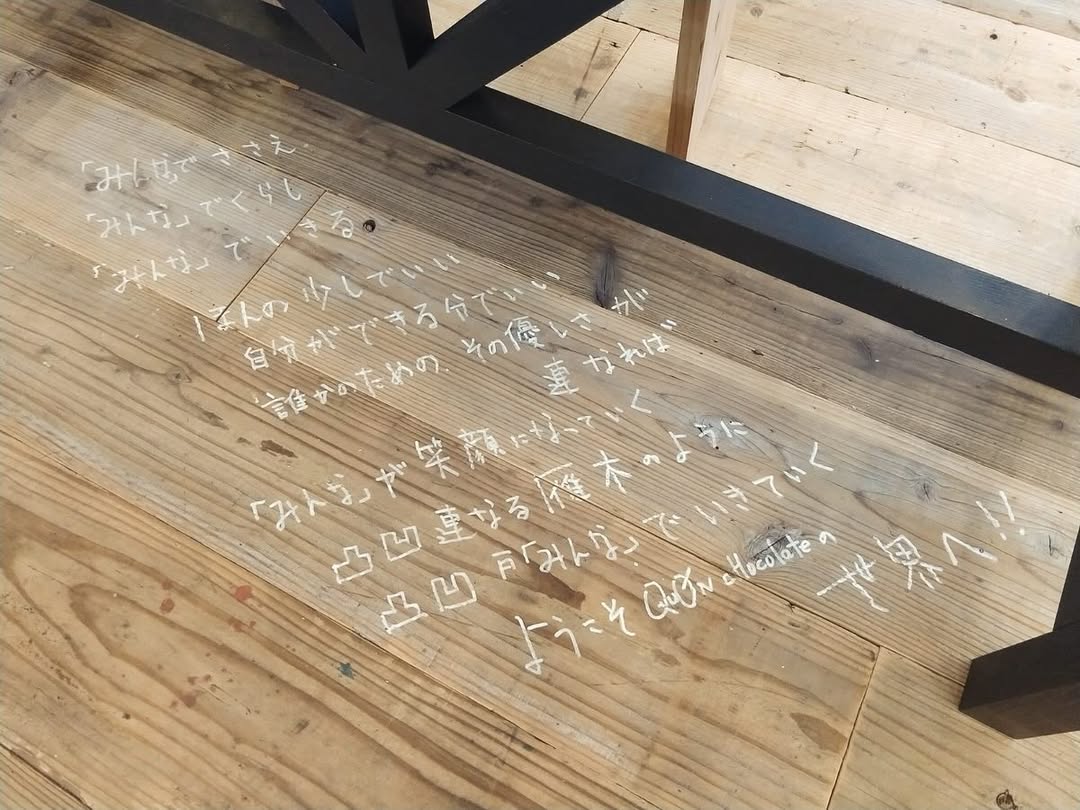 「みんなでささえ、
「みんな」でくらし
「みんな」でいきる
ほんの少しでいい
自分ができる分でいい
誰かのための、その優しさが
連なれば
「みんな」が笑顔になっていく
凸凹連なる雁木のように
凸凹「みんな」でいきていく
ようこそ QUON chocolate の
世界へ!!